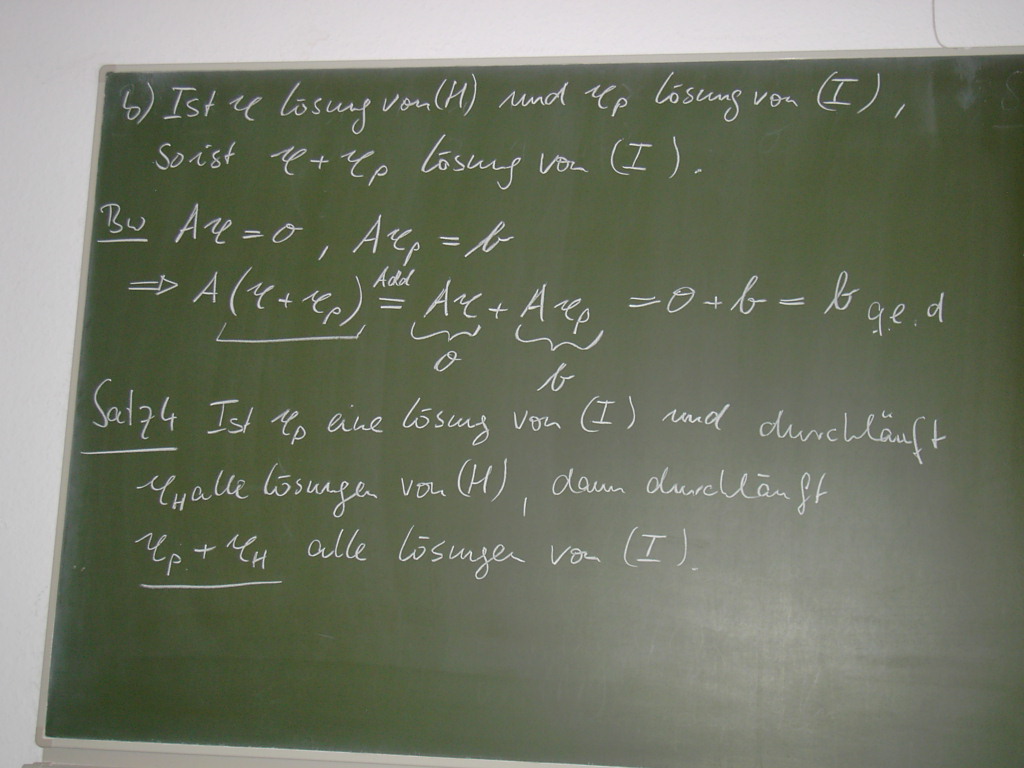 b) Ist 𝔵 Lösung von (H) und 𝔵p Lösung von (I),
so ist 𝔵 + 𝔵p Lösung von (I).
Bw A𝔵 = 0, A𝔵p = b
⇒ A(𝔵 + 𝔵p) =(Add) A𝔵 + A𝔵p = 0 + b = b q.e.d
0 b
Satz 4 Ist 𝔵p eine Lösung von (I) und durchläuft
𝔵H alle Lösungen von (H), dann durchläuft
𝔵p + 𝔵H alle Lösungen von (I).